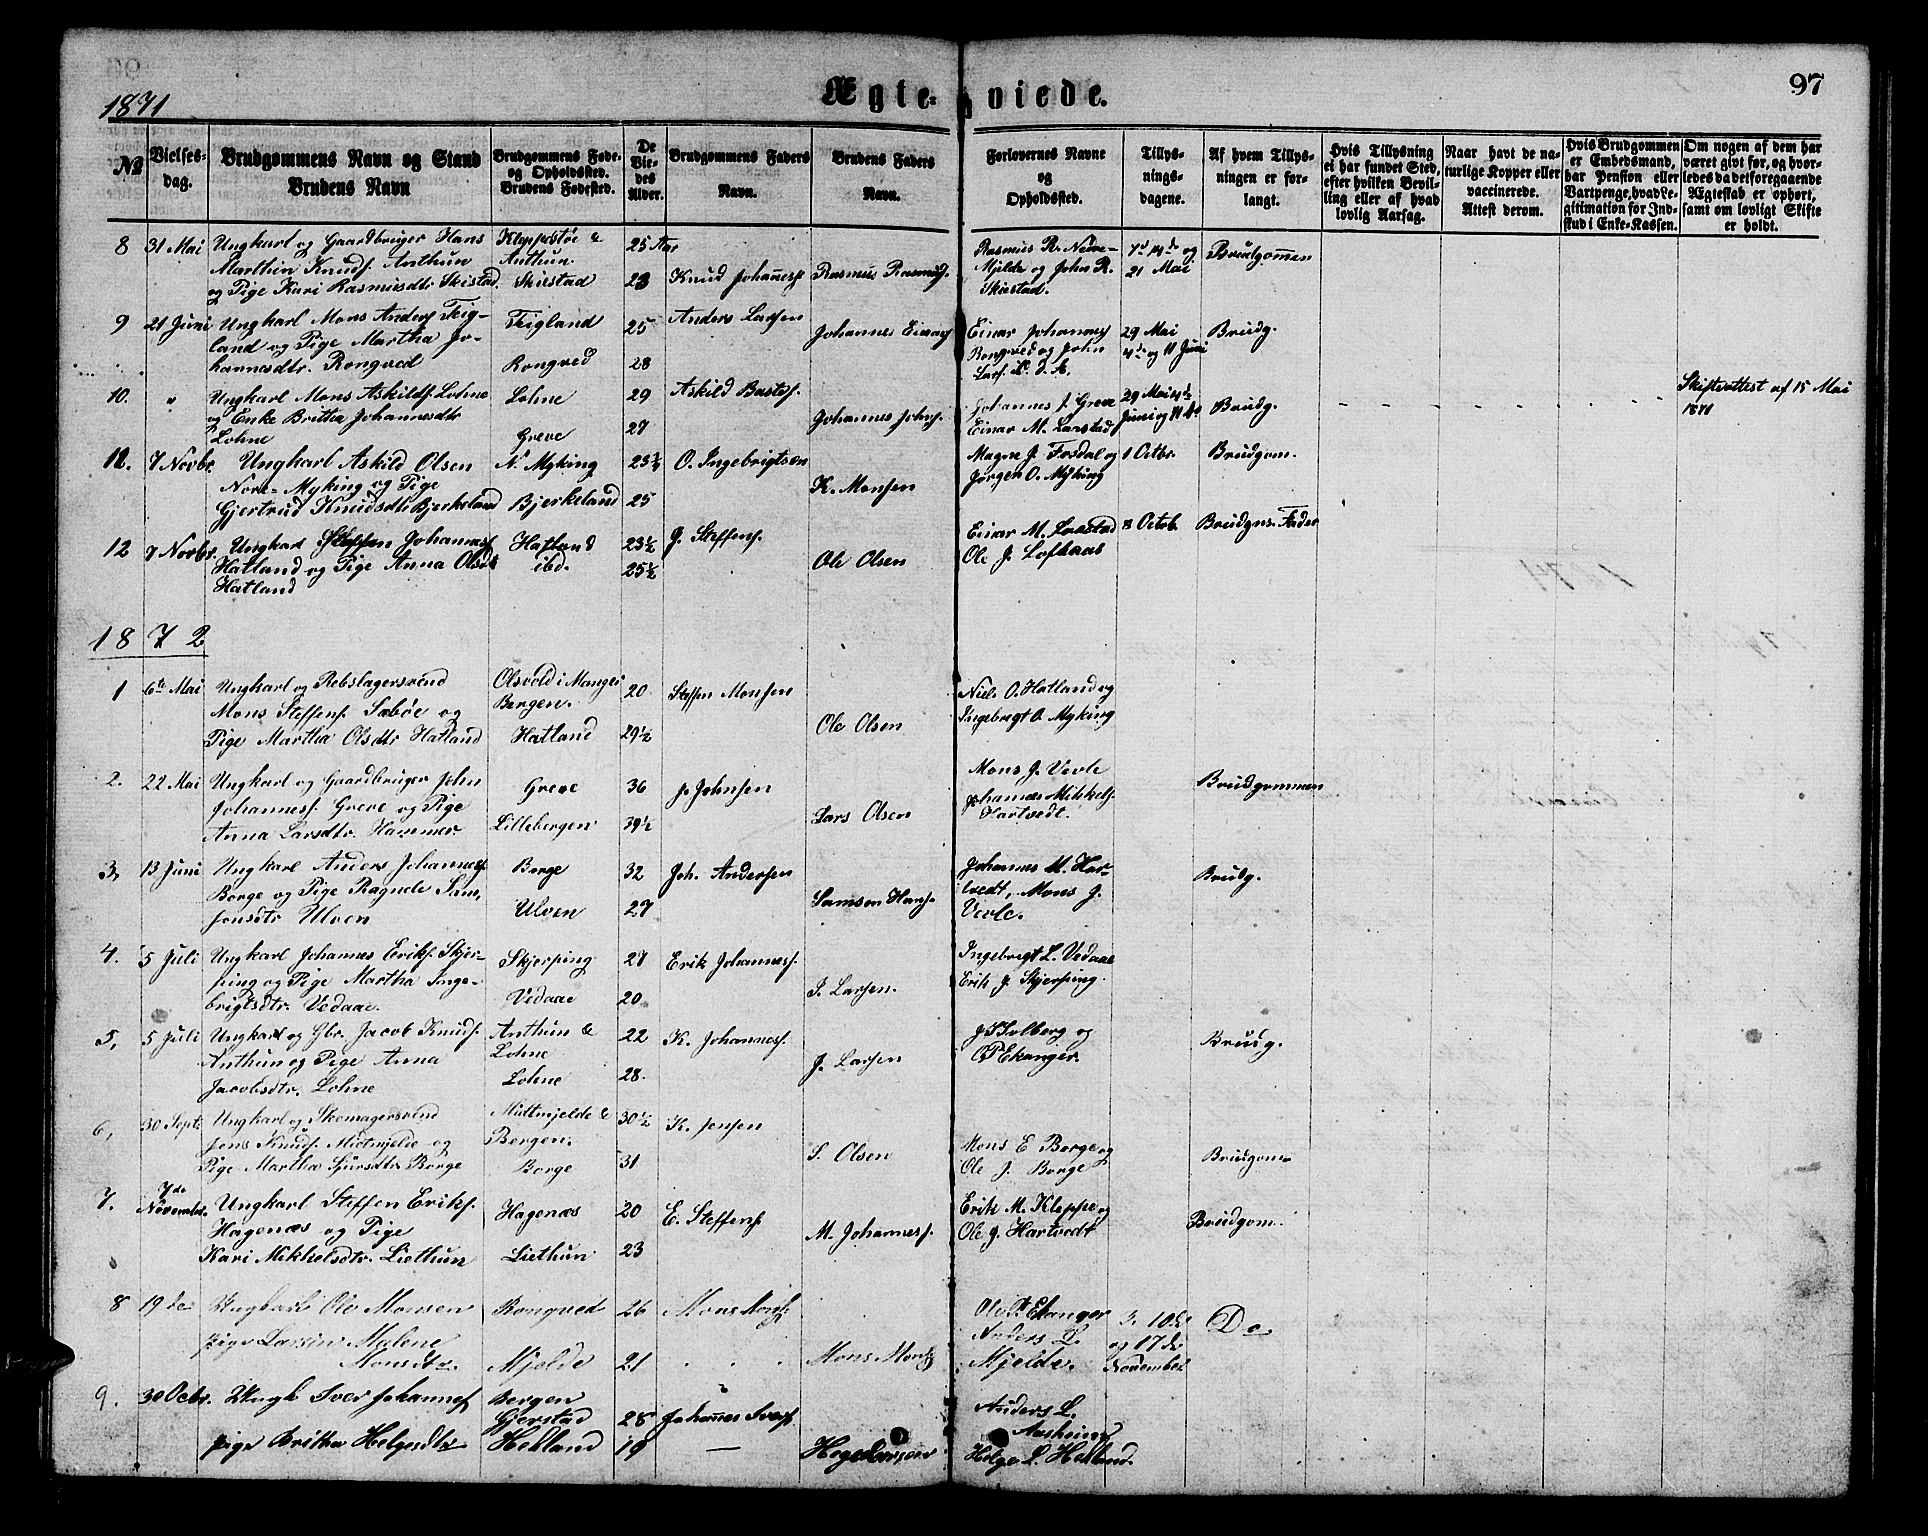 97
1871
Ægte-viede.
№
Vielses-dag.
Brudgommens Navn og Stand
Brudens Navn
Brudgommens Føde- og Opholdssted. Brudens Fødested.
De Vie-des Alder.
Brudgommens Faders Navn.
Brudens Faders Navn.
Forlovernes Navne og Opholdssted.
Tillys-nings-dagene.
Af hvem Tillys-ningen er for-langt.
Hvis Tillysning ei har fundet Sted, efter hvilken Bevil-ling eller af hvad lovlig Aarsag.
Naar havt de na-turlige Kopper eller vaccinerede. Attest derom.
Hvis Brudgommen er Embedsmand, har Pension eller Vartpenge, hvad Le-gitimation for Ind-skud i Enke-Kassen.
Om nogen af dem har været gift før, og hvor-ledes da det foregaaende Ægteskab er ophørt, samt om lovligt Skifte er holdt.
8 31 Mai Ungkarl og Gaardbruger Hans Kleppestøe & 25 Aar Rasmus R. Nedre- 7de 14de og Brudgommen
Marthin Knuds. Anthun Anthun. Knud Johannes. Rasmus Rasmus. Mjelde og John R. 21 Mai
og Pige Kari Rasmusdtr Skistad Skistad 23 Skistad.
9 21 Juni Ungkarl Mons Anders. Teig- Teigland 25 Anders Larsen Johannes Einars. Einar Johannes. 29 Mai Brudg.
land og Pige Martha Jo- Rongved og John 4de og 11 Juni
hannesdtr. Rongved Rongved 28 Lars.
10. " Ungkarl Mons Askilds. Lohne Lohne 29 Askild Baards. Johannes J. Greve 29 Mai 4de Brudg. Skifteattest af 15 Mai
og Enke Britha Johannesdtr Johannes Johns. Einar M. Lørstad Juni og 11 do 1871
Lohne Greve 27
11. 7 Novbr. Ungkarl Askild Olsen N. Myking 23½ O. Ingebrigtsen Magne J. Fosdal og 1 Octbr. Brudgom.
Nore-Myking og Pige K. Monsen Jørgen O. Myking
Gjertrud Knudsdtr Bjerkeland Bjerkeland 25
12 7 Novbr. Ungkarl Steffen Johannes. Hatland 23½ J. Steffens. Einar M. Lørstad 8 Octob. Brudgns. Fader
Hatland og Pige Anna Olsdtr ibd. 25½ Ole Olsen Ole J. Lofthaas
Hatland
1872
1 6te Mai Ungkarl og Rebslagersvend Olsvold i Manger 20 Steffen Monsen Niels O. Hatland og
Mons Steffens. Sæbøe og Bergen. Ole Olsen Ingebregt O. Myking
Pige Martha Olsdtr Hatland Hatland 29½
2. 22 Mai Ungkarl og Gaardbruger John Greve 36 J. Johnsen Mons J. Vevle Brudgommen
Johannes. Greve og Pige Lars Olsen Johannes Mikkels.
Anna Larsdtr. Hammer Lillebergen 39½ Hartvedt.
3, 13 Juni Ungkarl Anders Johannes. Borge 32 Joh. Andersen Johannes M. Har- Brudg.
Borge og Pige Ragnele Sam, Samson Hans. tvedt, Mons J.
sonsdtr Ulven Ulven 27 Vevle.
4. 5 Juli Ungkarl Johannes Eriks. Skjer- Skjerping 27 Erik Johannes. Ingebregt L. Vedaae
ping og Pige Martha Inge- I. Larsen. Erik J. Skjerping.
brigtsdtr. Vedaae. Vedaae 20
5, 5 Juli Ungkarl og Gbr. Jacob Knuds. Anthun & 22 K. Johannes. J. Solberg og Brudg.
Anthun og Pige Anna Lohne J. Larsen O P Ekanger.
Jacobsdtr. Lohne Lohne 28.
6, 30 Septr Ungkarl og Skomagersvend Midtmjelde & 30½ K. Jensen Mons E Borge og Brudgom
Jens Knuds. Midtmjelde og Bergen. S. Olsen Ole J. Borge
Pige Martha Sjursdtr Borge Borge 31
7. 7de Novembr. Ungkarl Steffen Eriks. Hagenæs 20 E. Steffens. Erik M. Kleppe og Brudgom.
Hagenæs og Pige M. Johannes. Ole J. Hartvedt
Kari Mikkelsdtr. Liethun Liethun 23
8 19de Ungkarl Ole Monsen Rongved 26 Mons Mons. Ole P. Ekanger 3. 10de Do
pige Larsin Malene Anders L. og 17de
Monsdtr. Mjelde 21 Mons Mons. Mjelde. November
9. 30 Octbr. Ungk Iver Johannes. Bergen Anders L.
Gjerstad 28 Johannes Ivers. Aasheim
pige Britha Helgesdtr Helland 19 — Helge Larsen Helge L. Helland.